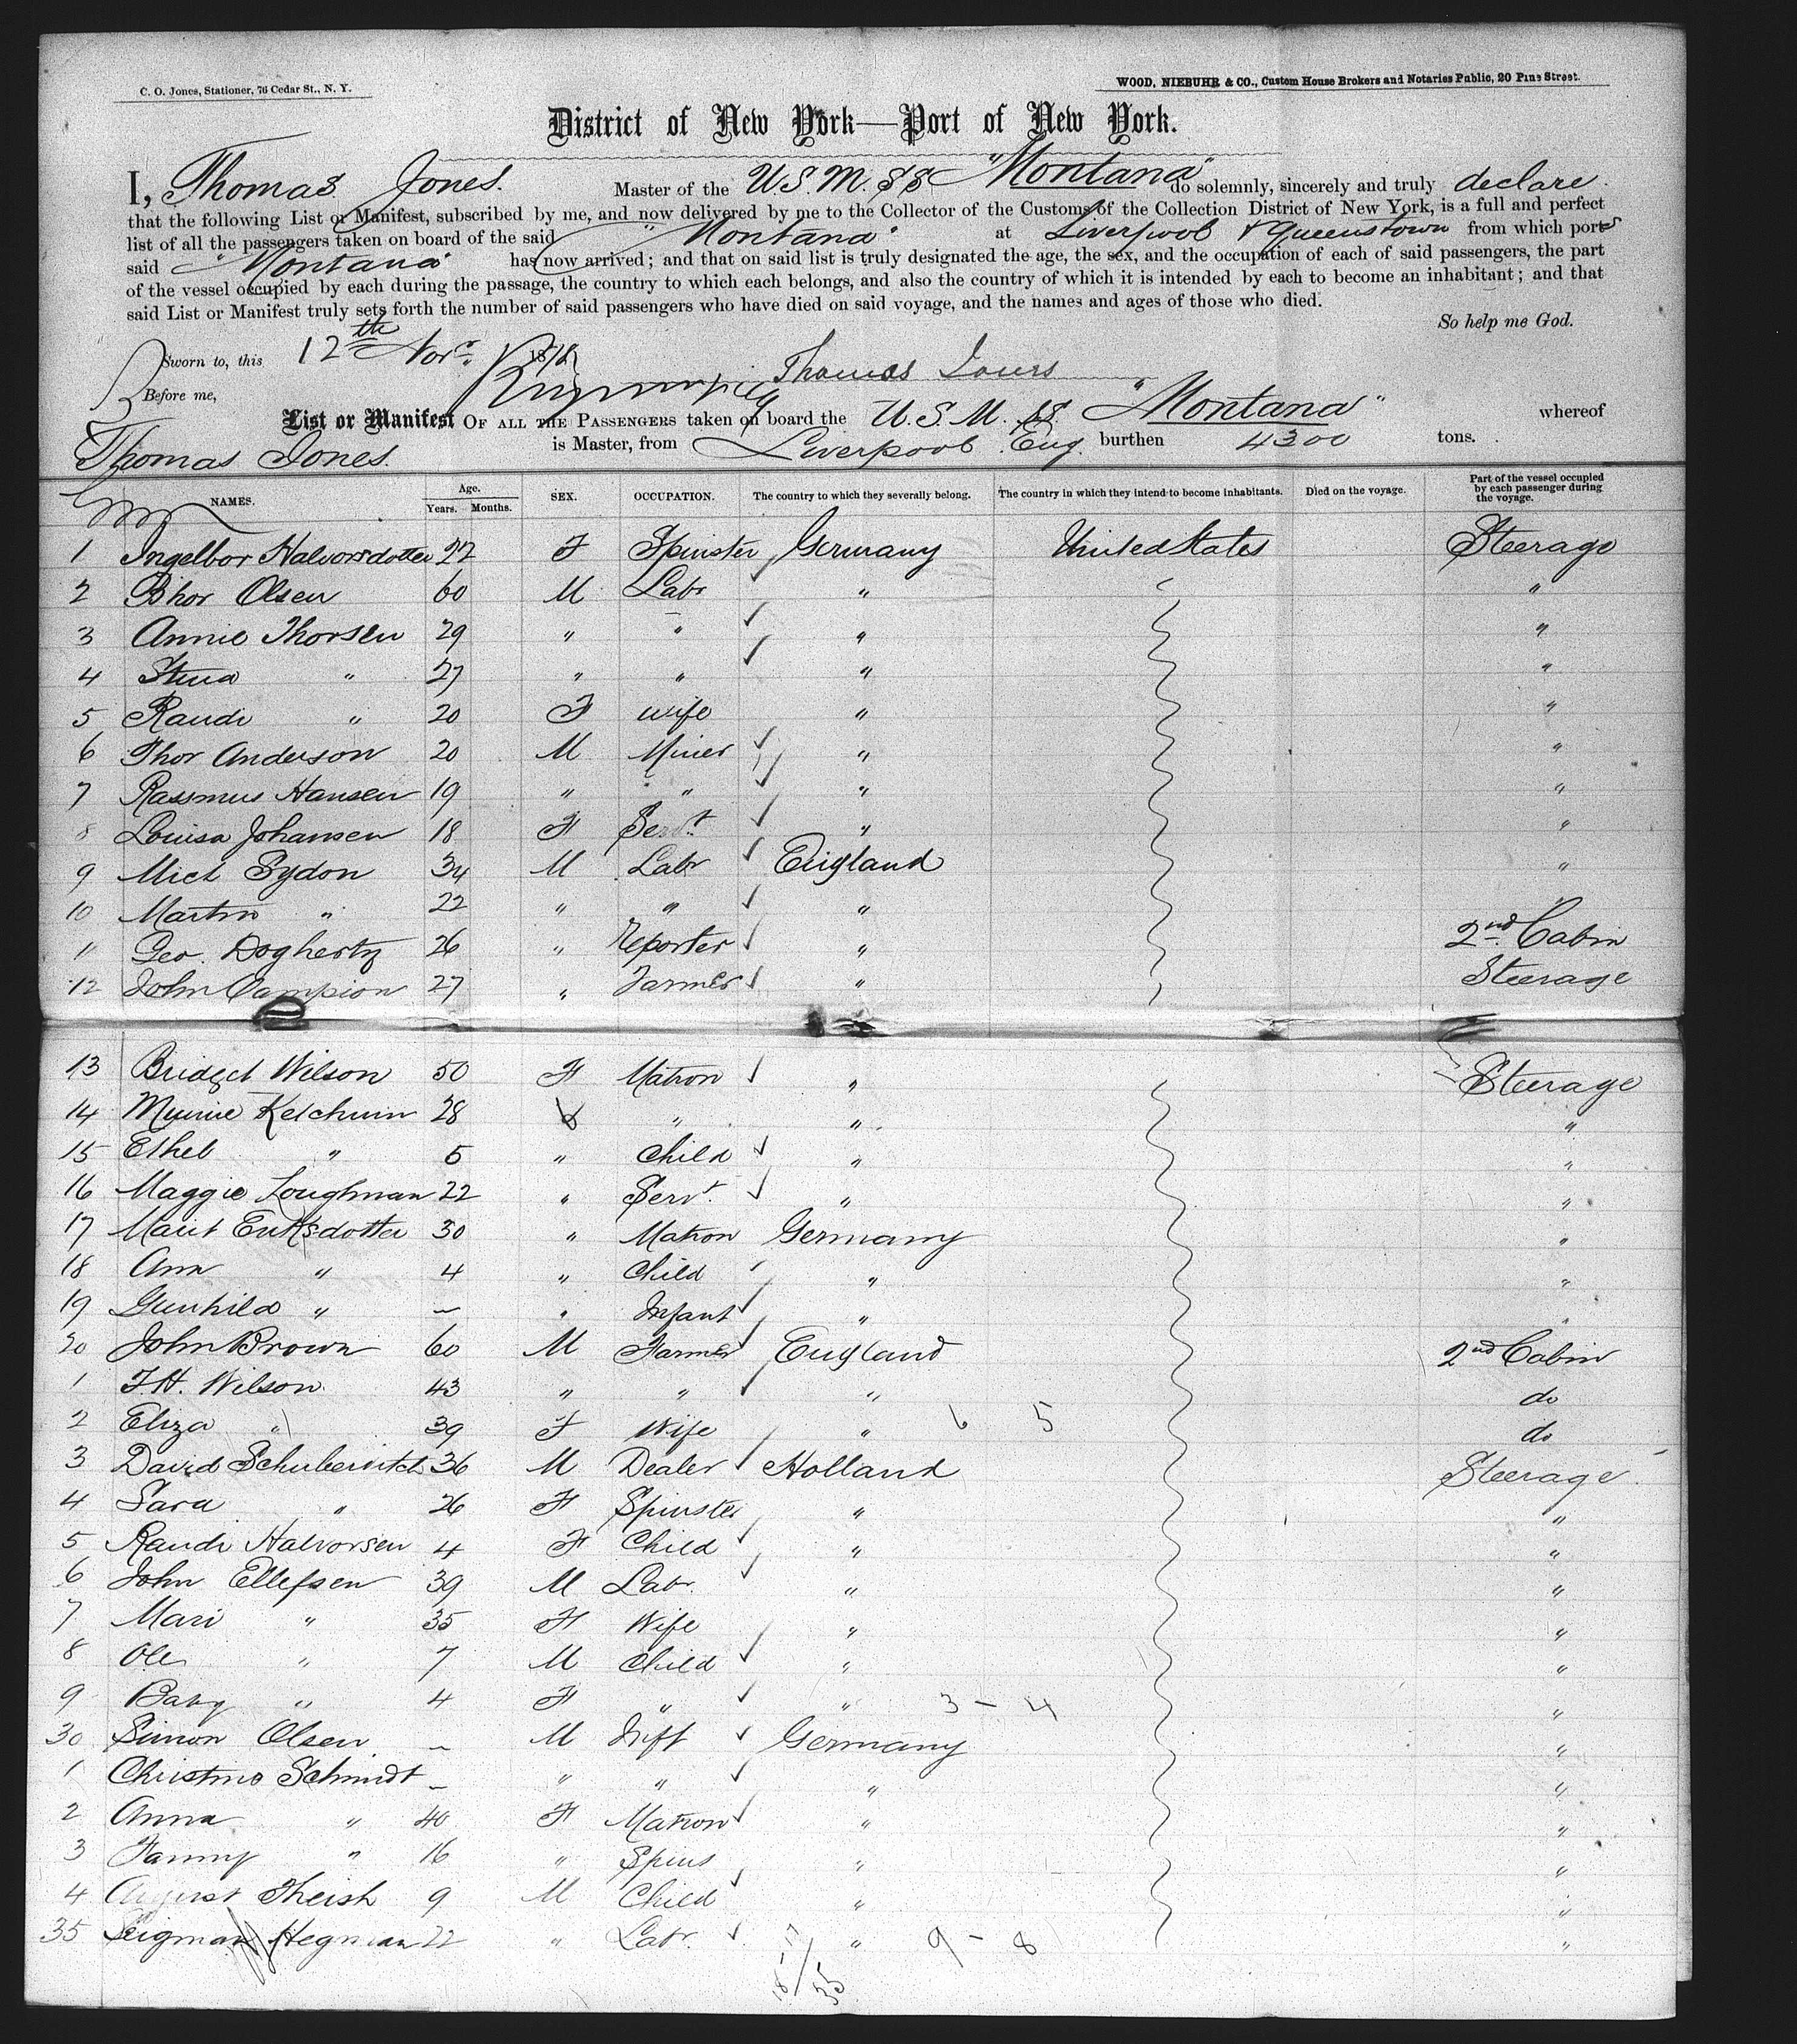 C. O. Jones, Stationer, 76 Cedar St., N. Y.
WOOD, NIEBUHR & CO., Custom House Brokers and Notaries Public, 20 Pine Street.
District of New York—Port of New York.
I, Thomas Jones. Master of the U.S.M. SS "Montana" do solemnly, sincerely and truly declare
that the following List or Manifest, subscribed by me, and now delivered by me to the Collector of the Customs of the Collection District of New York, is a full and perfect
list of all the passengers taken on board of the said "Montana" at Liverpool & Queenstown from which ports
said "Montana" has now arrived; and that on said list is truly designated the age, the sex, and the occupation of each of said passengers, the part
of the vessel occupied by each during the passage, the country to which each belongs, and also the country of which it is intended by each to become an inhabitant; and that
said List or Manifest truly sets forth the number of said passengers who have died on said voyage, and the names and ages of those who died.
So help me God.
Sworn to, this 12th Novr. 187
Thomas Jones
Before me,
List or Manifest OF ALL THE PASSENGERS taken on board the U.S.M. SS. "Montana" whereof
Thomas Jones. is Master, from Liverpool Eng. burthen 4300 tons.
NAMES. Age. Years. Months. SEX. OCCUPATION. The country to which they severally belong. The country in which they intend to become inhabitants. Died on the voyage. Part of the vessel occupied by each passenger during the voyage.
1 Ingelbor Halvorsdotter 22 F Spinster Germany United States Steerage
2 Olsen 60 M Labr " "
3 Annie Thorsen 29 " " " "
4 Stina " 27 " " " "
5 Randi " 20 F wife " "
6 Thor Anderson 20 M Miner " "
7 Rassmus Hansen 19 " " " "
8 Louisa Johansen 18 F Servt. " "
9 Mich Sydon 34 M Labr England "
10 Martin " 22 " " " "
11 Geo. Dogherty 26 " Reporter " 2nd Cabin
12 John Campion 27 " Farmer " Steerage
13 Bridget Wilson 50 F Matron " Steerage
14 Minnie Ketchum 28 " " "
15 Ethel " 5 " Child " "
16 Maggie Loughman 22 " Servt. " "
17 Marit Eriksdotter 30 " Matron Germany "
18 Ann " 4 " Child " "
19 Gunhild " — " Infant " "
20 John Brown 60 M Farmer England 2nd Cabin
1 F.H. Wilson 43 " " " do
2 Eliza " 39 F Wife " 6 5 do
3 David Schuberitch 36 M Dealer Holland Steerage
4 Sara " 26 F Spinster " "
5 Randi Halvorsen 4 F Child " "
6 John Ellefsen 39 M Labr. " "
7 Mari " 35 F Wife " "
8 Ole " 7 M Child " "
9 Baby " 4 F " " 3 — 4 "
30 Simon Olsen — M Inft Germany "
1 Christine Schmidt — " " " "
2 Anna " 40 F Matron " "
3 Fanny " 16 " Spins " "
4 August Theish 9 M Child " "
35 Hegman 22 " Labr. " 9 — 8 "
18 — 17
35